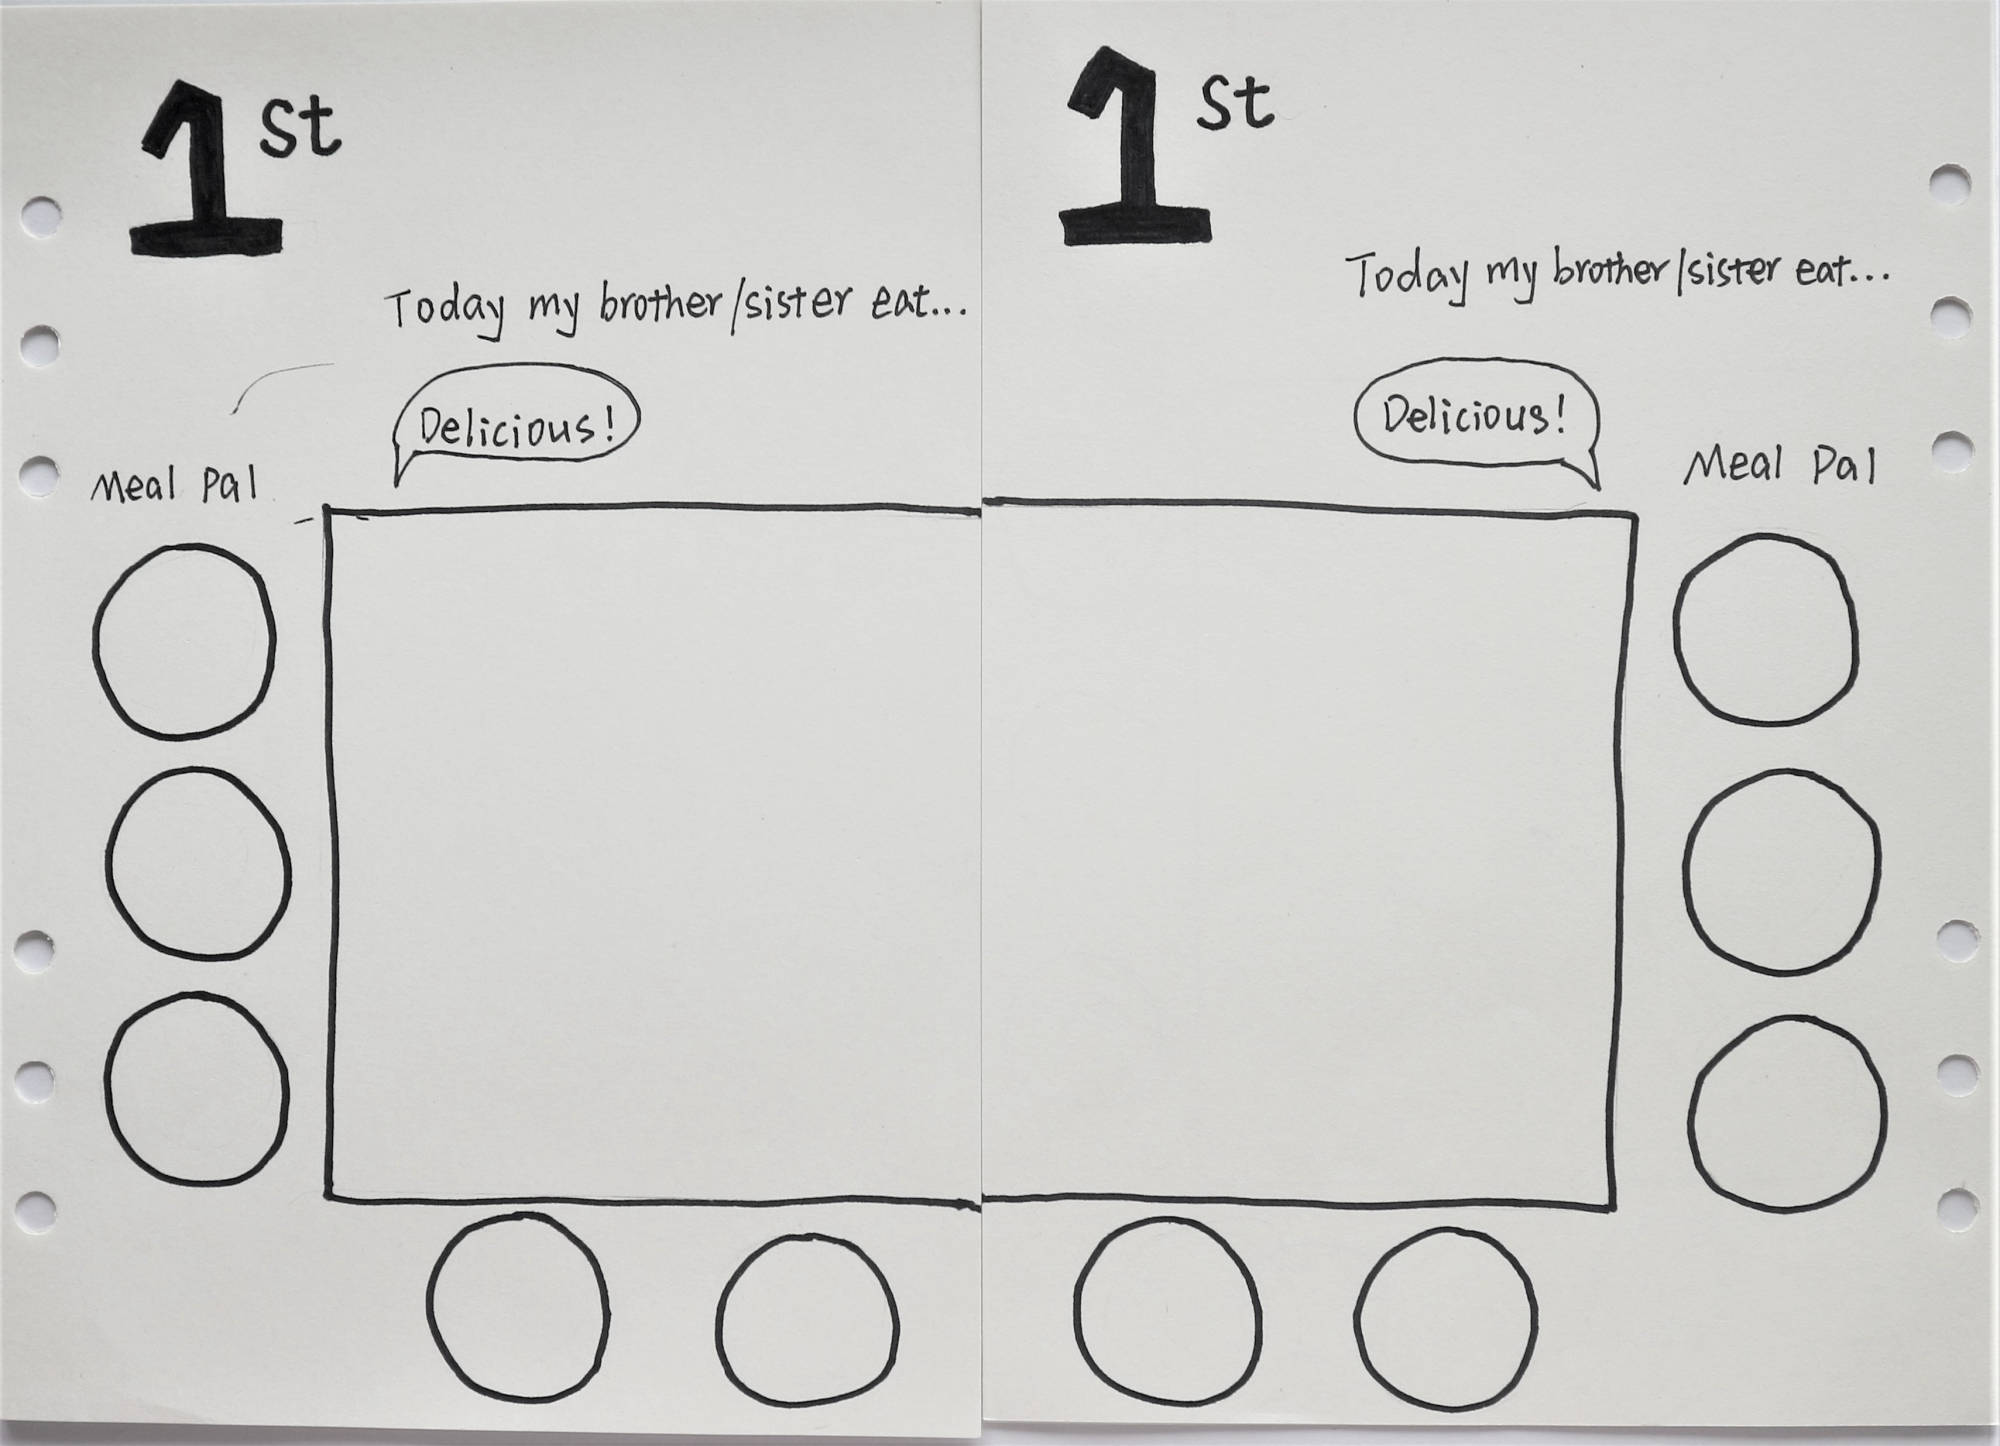 1st
Today my brother/sister eat...
Delicious!
Meal Pal
1st
Today my brother/sister eat...
Delicious!
Meal Pal